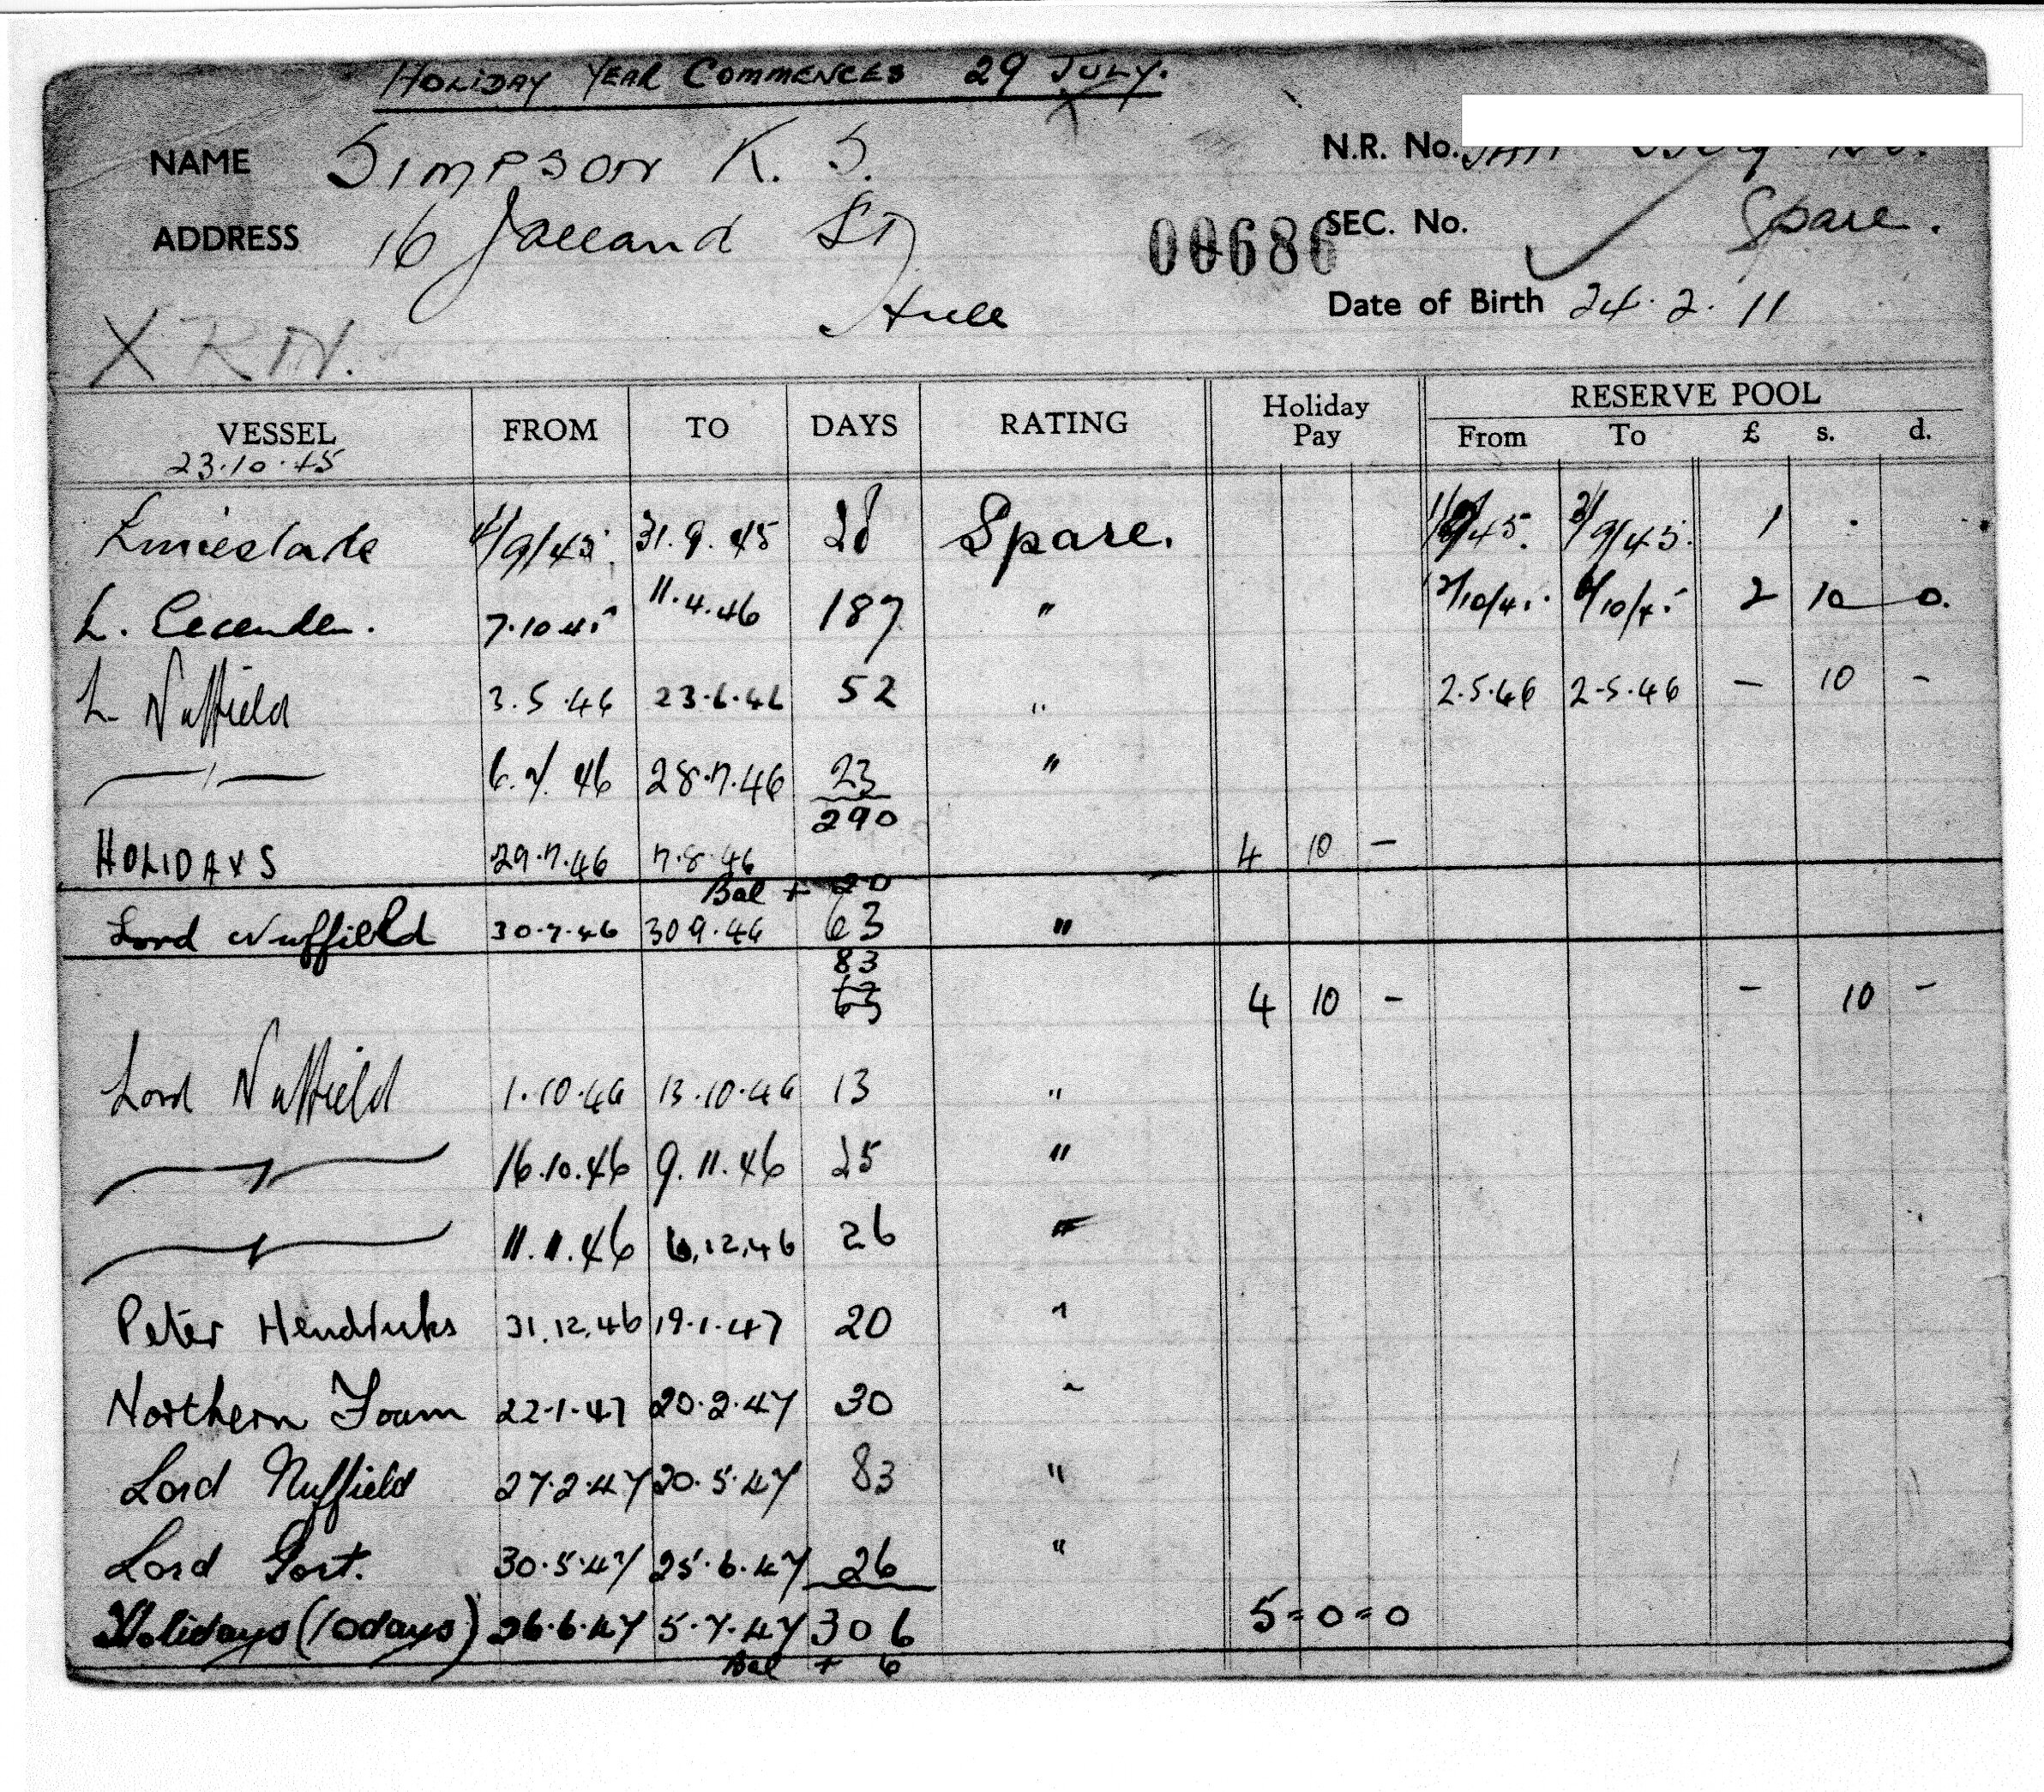 HOLIDAY YEAR COMMENCES 29 JULY.
NAME SIMPSON K. S. N.R. No.
ADDRESS 16 Jalland St 00686 SEC. No. Spare.
Hull Date of Birth 24.2.11
X R.N.
Holiday RESERVE POOL
VESSEL FROM TO DAYS RATING Pay From To £ s. d.
23.10.45
31.9.45 28 Spare. 1
L. 7.10.45 11.4.46 187 " 2 10 0.
L Nuffield 3.5.46 23.6.46 52 " 2.5.46 2.5.46 — 10 -
—"— 6.7.46 28.7.46 23 "
290
HOLIDAYS 29.7.46 7.8.46 4 10 -
Bal + 20
Lord Nuffield 30.7.46 30 9.46 63 "
83
63 4 10 - - 10 -
Lord Nuffield 1.10.46 13.10.46 13 "
—"— 16.10.46 9.11.46 25 "
—"— 11.11.46 6.12.46 26 "
Peter Hendriks 31.12.46 19.1.47 20 "
Northern Foam 22.1.47 20.2.47 30 "
Lord Nuffield 27.2.47 20.5.47 83 "
Lord Gort. 30.5.47 25.6.47 26 "
Holidays (10 days) 26.6.47 5.7.47 306 5=0=0
Bal + 6